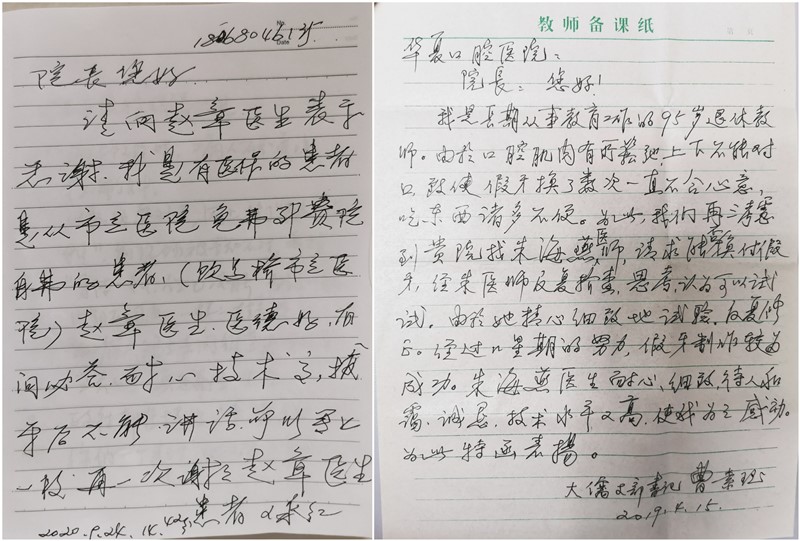 No
Date
院长您好
请向赵章医生表示
感谢.我是有医保的患者
是从市立医院免费到贵院
自费的患者.(饮马桥市立医
院)赵章医生.医德好,有
问必答.耐心技术高,拔
牙后不能讲话.可以
一次再一次谢谢赵章医生
患者
2020.9.24.14.42
教师备课纸
华夏口腔医院:
院长:您好!
我是长期从事教育工作的95岁退休教
师。由於口腔肌肉有所萎弛上下不能对
口致使假牙换了数次一直不合心意,
吃东西诸多不便。为此,我们再三考虑
到贵院找朱海燕医师,请求能换付假
牙,经朱医师反复检查,思考,认为可以试
试。由於她精心细致地试验,反复修
正。经过几星期的努力,假牙制作较为
成功。朱海燕医生耐心,细致,待人和
霭,诚恳,技术水平又高,使我为之感动。
为此特函表扬。
曹
2019.4.15.